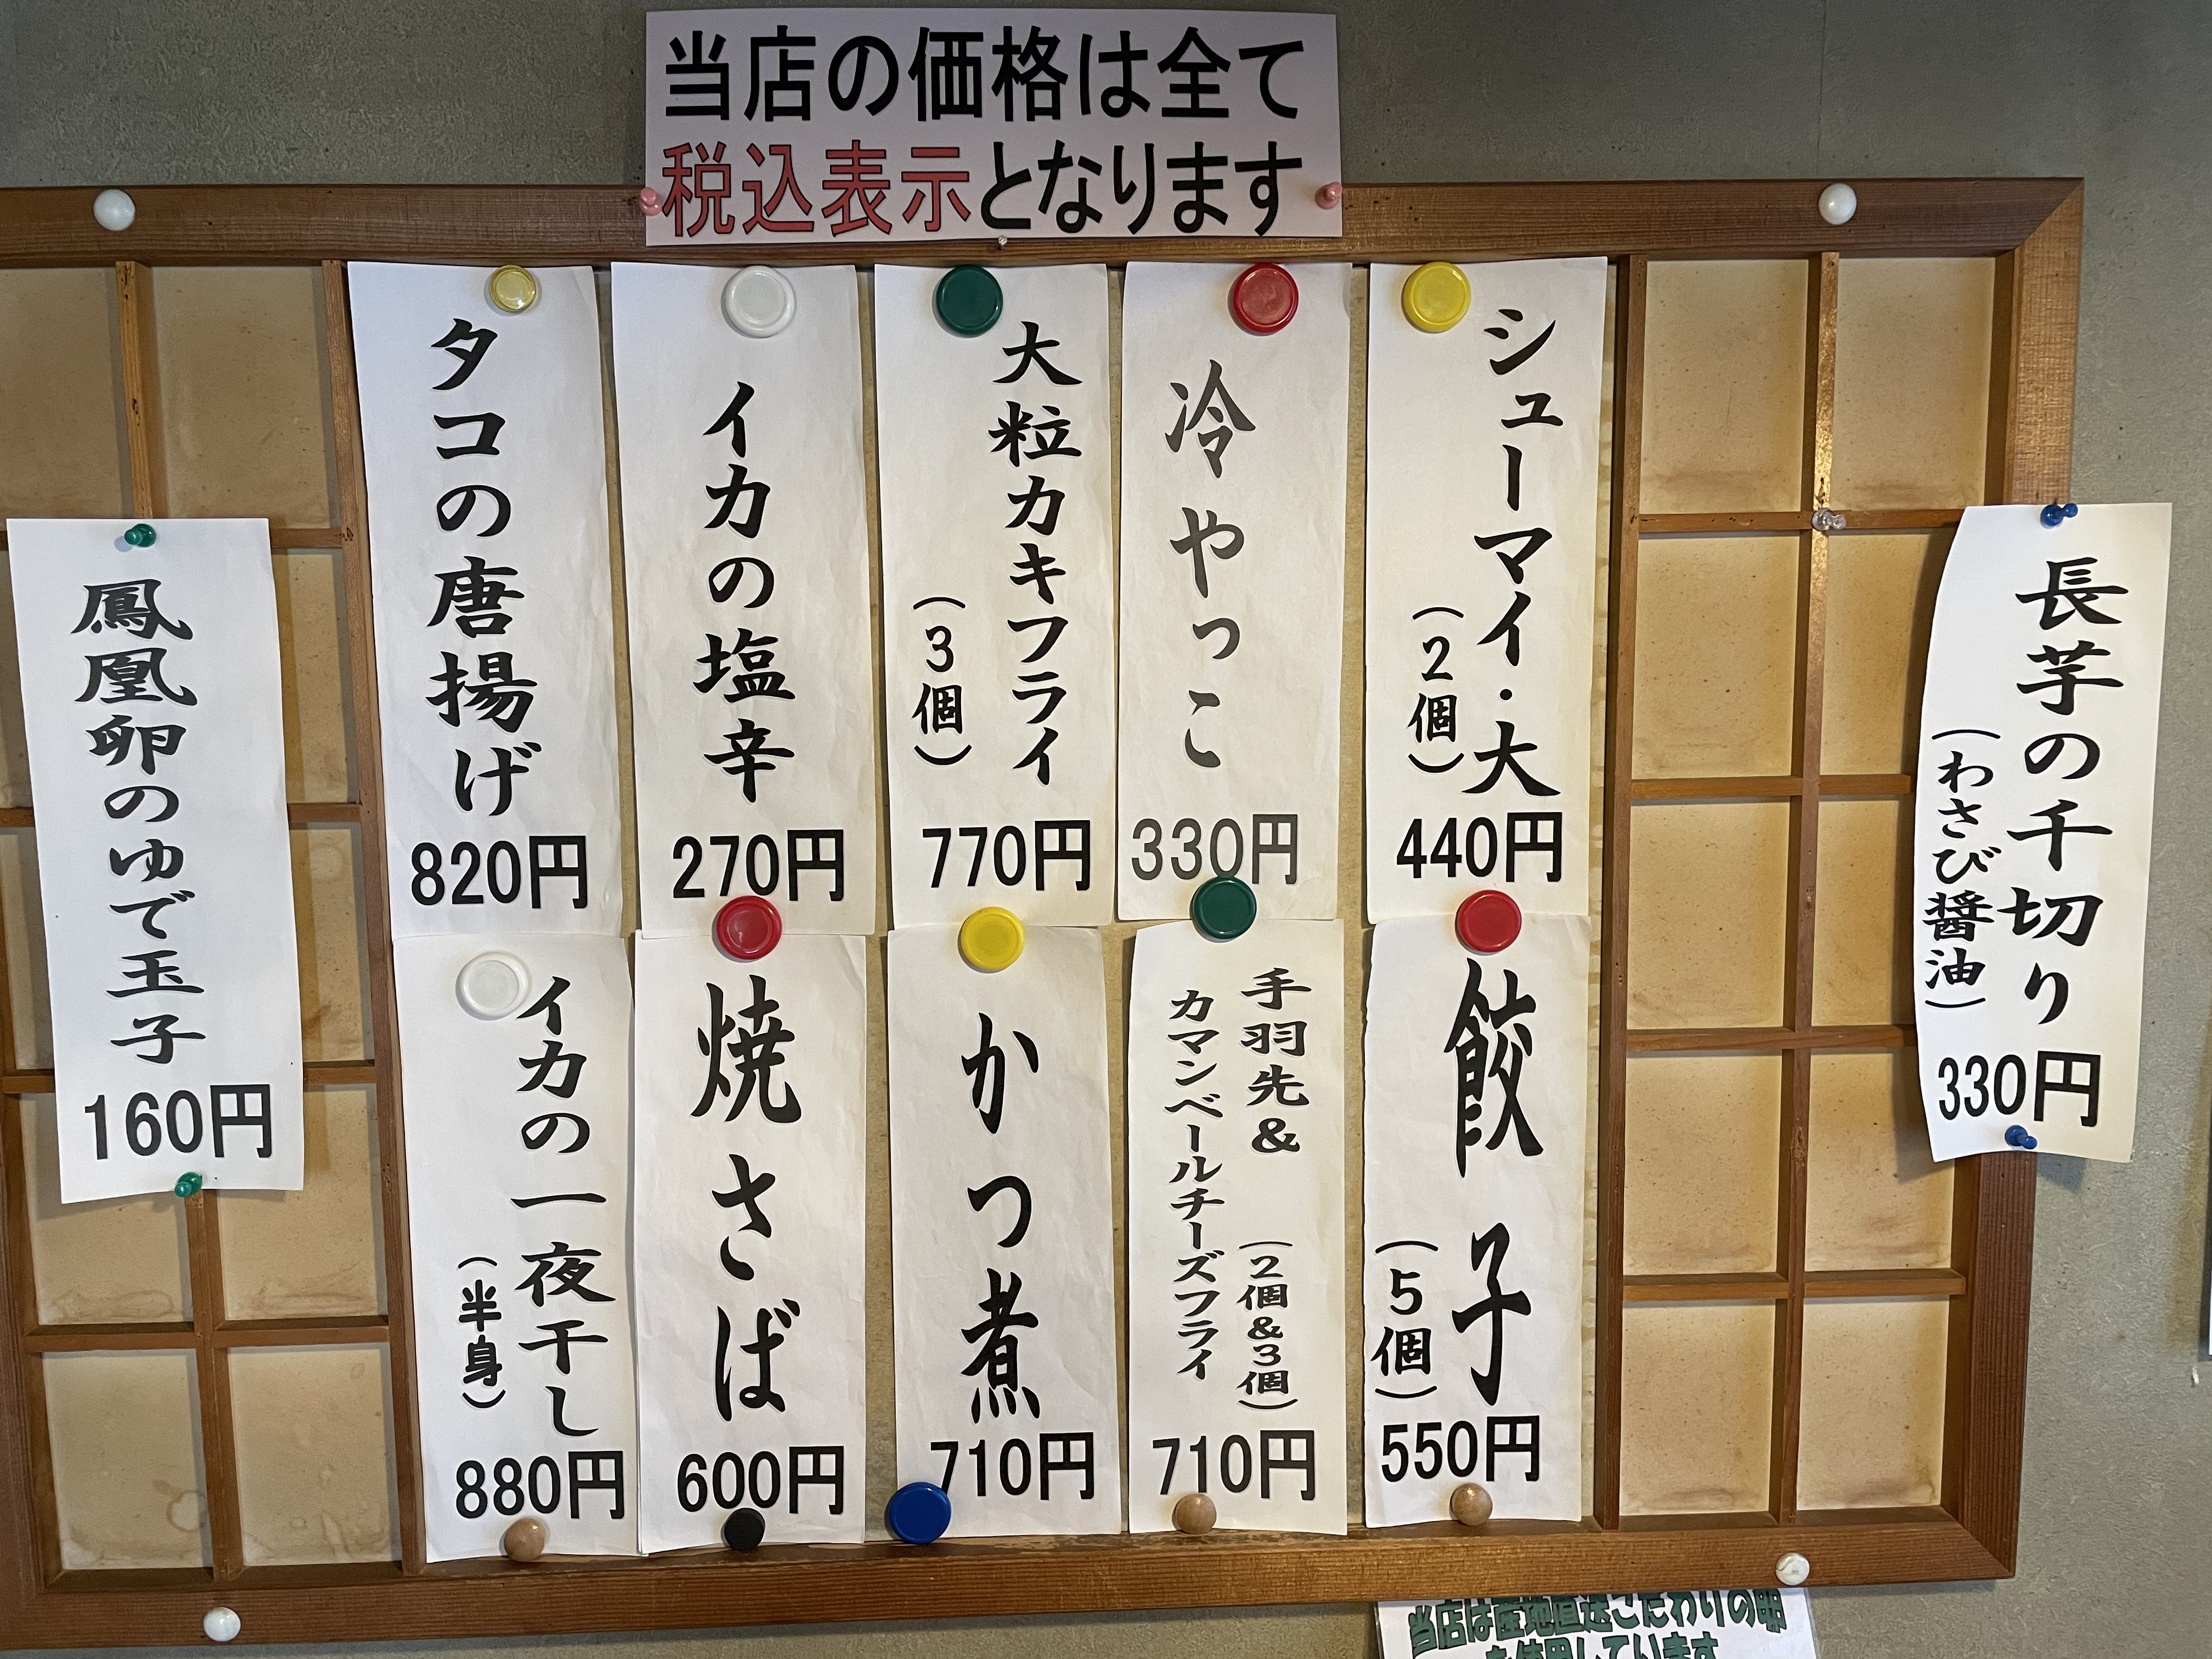 当店の価格は全て
税込表示となります
長芋の千切り
（わさび醤油）
330円
シューマイ・大
（2個）
440円
冷やっこ
330円
大粒カキフライ
（3個）
770円
イカの塩辛
270円
タコの唐揚げ
820円
餃子
（5個）
550円
手羽先＆
（2個＆3個）
カマンベールチーズフライ
710円
かつ煮
710円
焼さば
600円
イカの一夜干し
（半身）
880円
鳳凰卵のゆで玉子
160円
当店は産地直送こだわりの卵
を使用しています